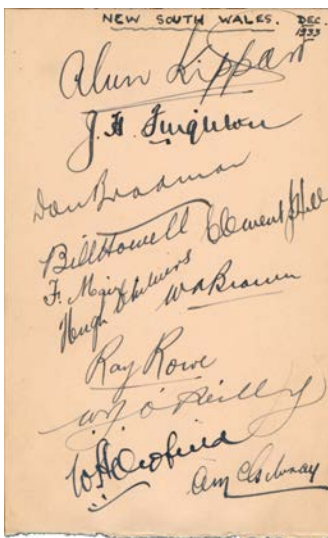 NEW SOUTH WALES. DEC. 1933
Alan Kippax
J. H. Fingleton
Don Bradman
Bill Howell Clement J Hill
F. Mair
Hugh Chilvers W A Brown
Ray Rowe
W J O'Reilly
W A Oldfield